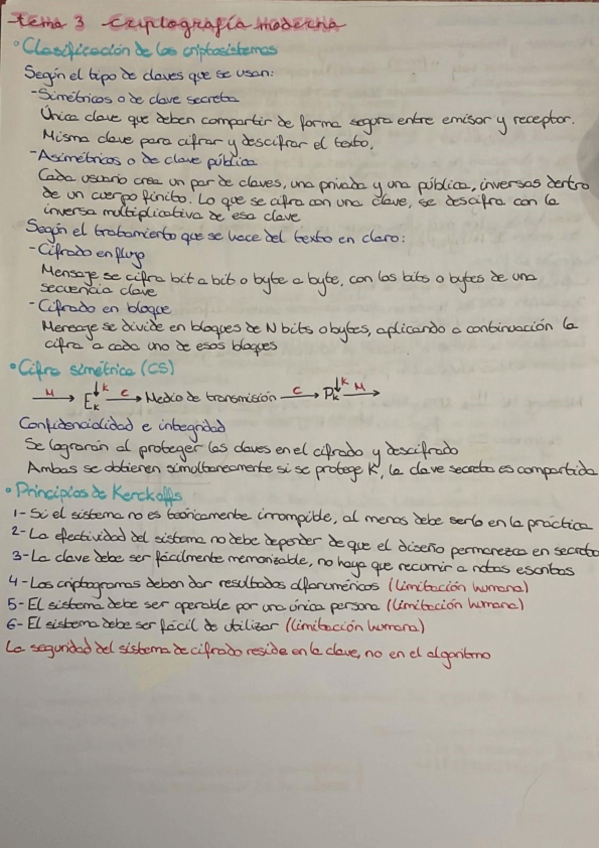 Tema 3 Criptografía moderna
• Clasificación de los criptosistemas
Según el tipo de claves que se usan:
- Simétricos o de clave secreta
Única clave que deben compartir de forma segura entre emisor y receptor.
Misma clave para cifrar y descifrar el texto.
- Asimétricos o de clave pública
Cada usuario crea un par de claves, una privada y una pública, inversas dentro
de un cuerpo finito. Lo que se cifra con una clave, se descifra con la
inversa multiplicativa de esa clave
Según el tratamiento que se hace del texto en claro:
- Cifrado en flujo
Mensaje se cifra bit a bit o byte a byte, con los bits o bytes de una
secuencia clave
- Cifrado en bloque
Mensaje se divide en bloques de N bits o bytes, aplicando a continuación la
cifra a cada uno de esos bloques
• Cifra simétrica (CS)
M → E_K ↓K C → Medio de transmisión C → D_K ↓K M →
Confidencialidad e integridad
Se lograrán al proteger las claves en el cifrado y descifrado
Ambas se obtienen simultaneamente si se protege K, la clave secreta es compartida
• Principios de Kerckoffs
1- Si el sistema no es teóricamente irrompible, al menos debe serlo en la práctica
2- La efectividad del sistema no debe depender de que el diseño permanezca en secreto
3- La clave debe ser fácilmente memorizable, no haya que recurrir a notas escritas
4- Los criptogramas deben dar resultados alfanuméricos (limitación humana)
5- El sistema debe ser operable por una única persona (limitación humana)
6- El sistema debe ser fácil de utilizar (limitación humana)
La seguridad del sistema de cifrado reside en la clave, no en el algoritmo